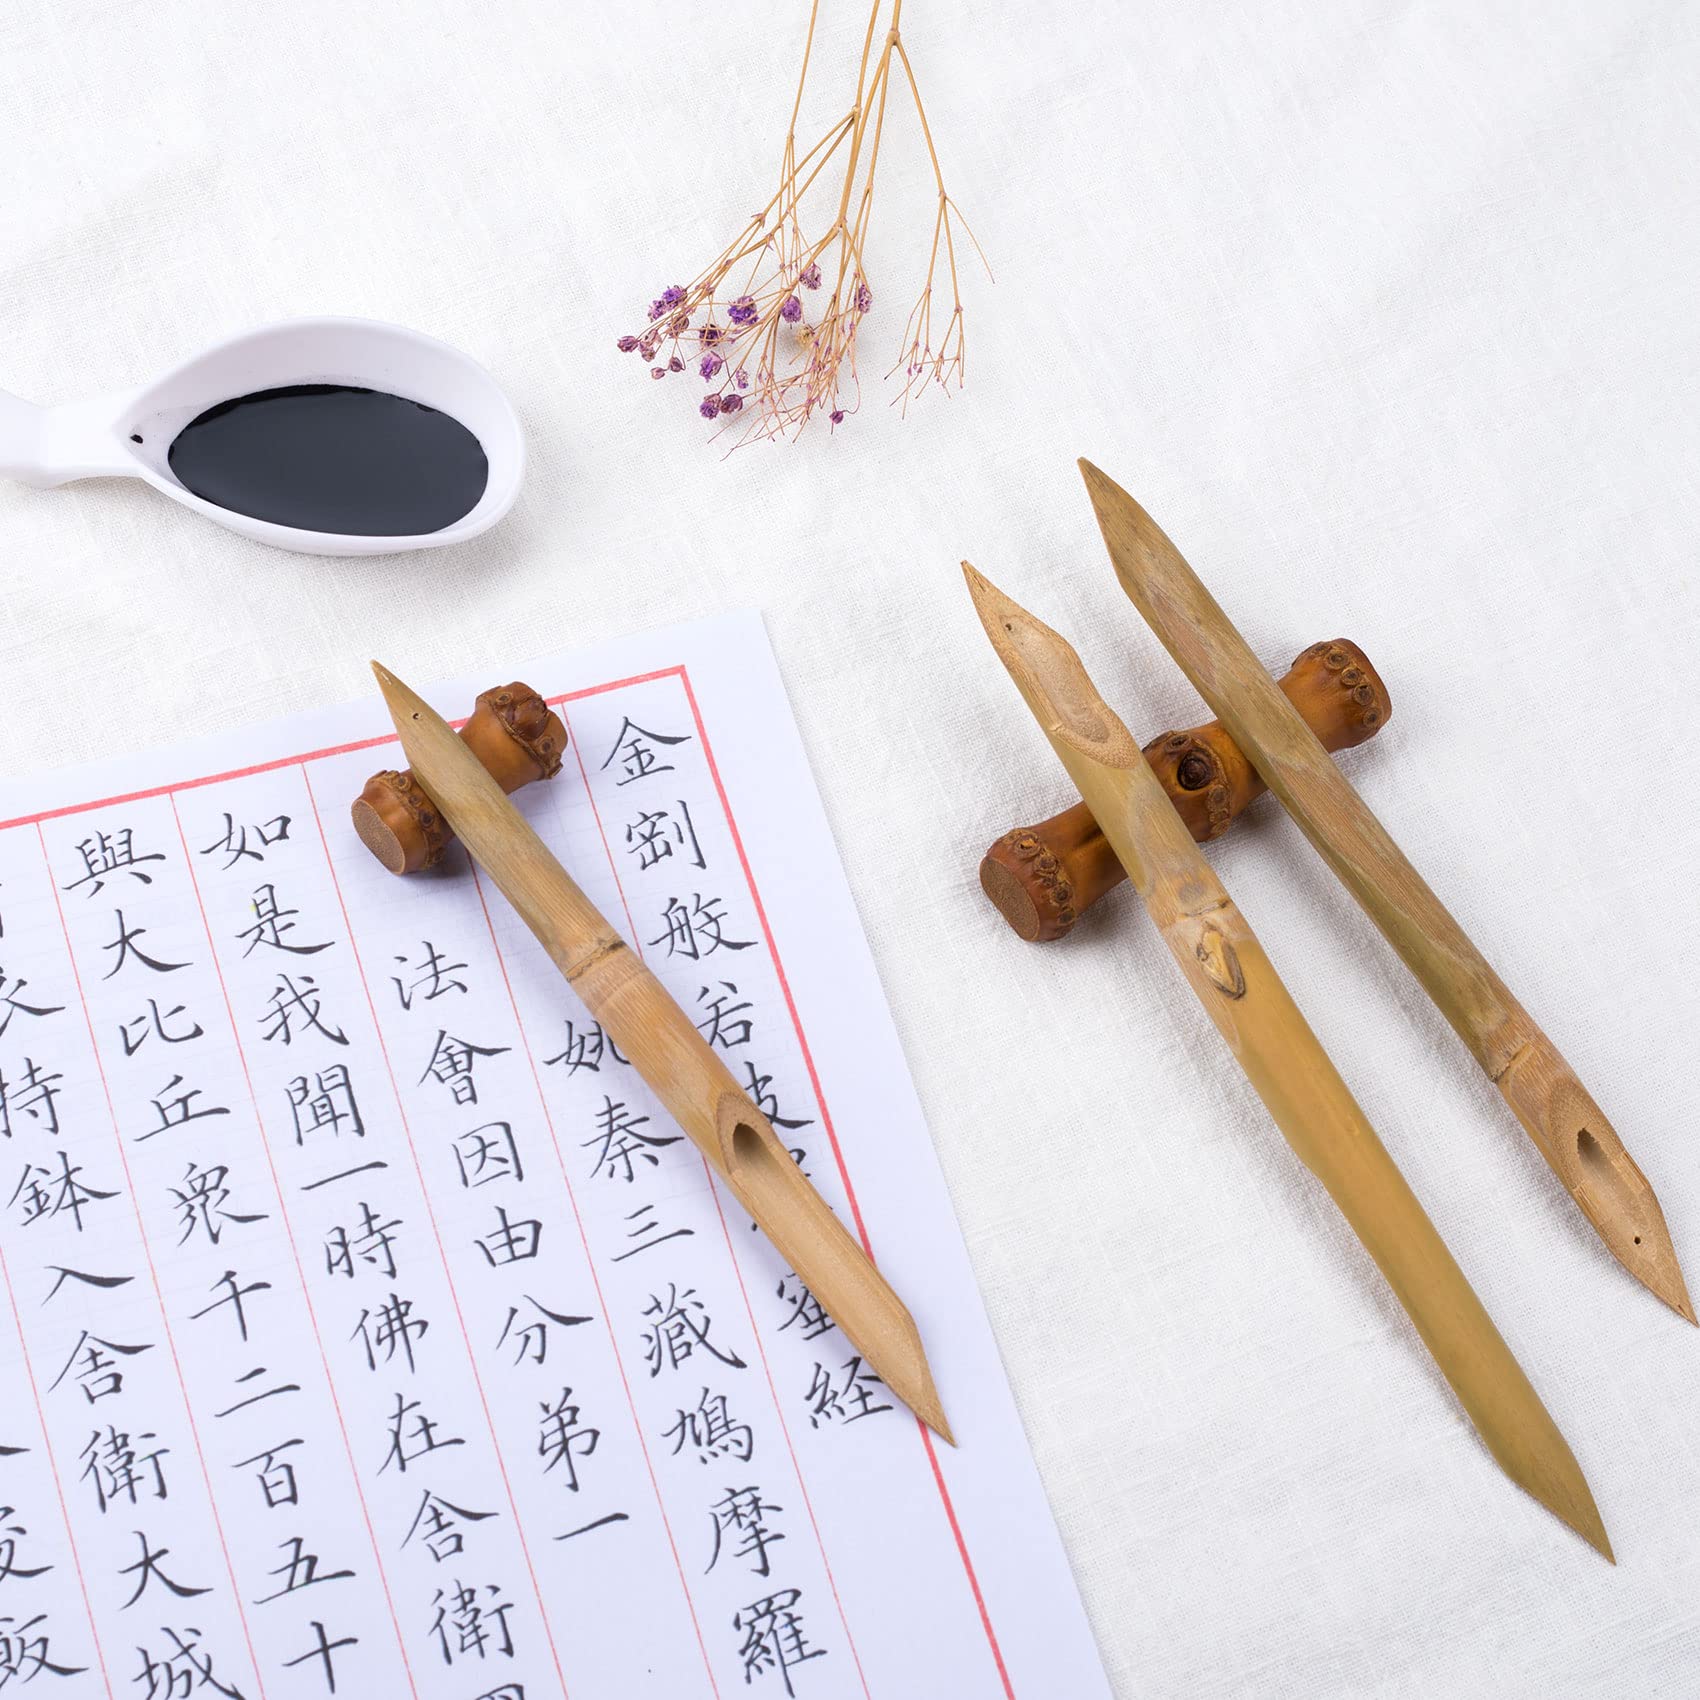 金剛般若波蜜經
姚秦三藏鳩摩羅
法會因由分弟一
如是我聞一時佛在舍衛
與大比丘眾千二百五十
衣持鉢入舍衛大城
飯